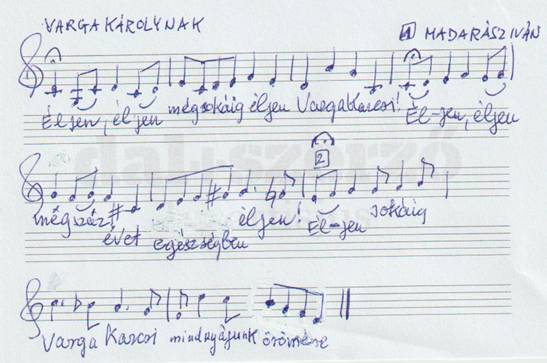 VARGA KÁROLYNAK
1 MADARÁSZ IVÁN
Éljen, éljen mégsokáig éljen Vargakarcsi! Él-jen, éljen
2
mégszáz évet egészségben éljen! Él-jen sokáig
Varga Karcsi mindnyájunk örömére
dal+szerző